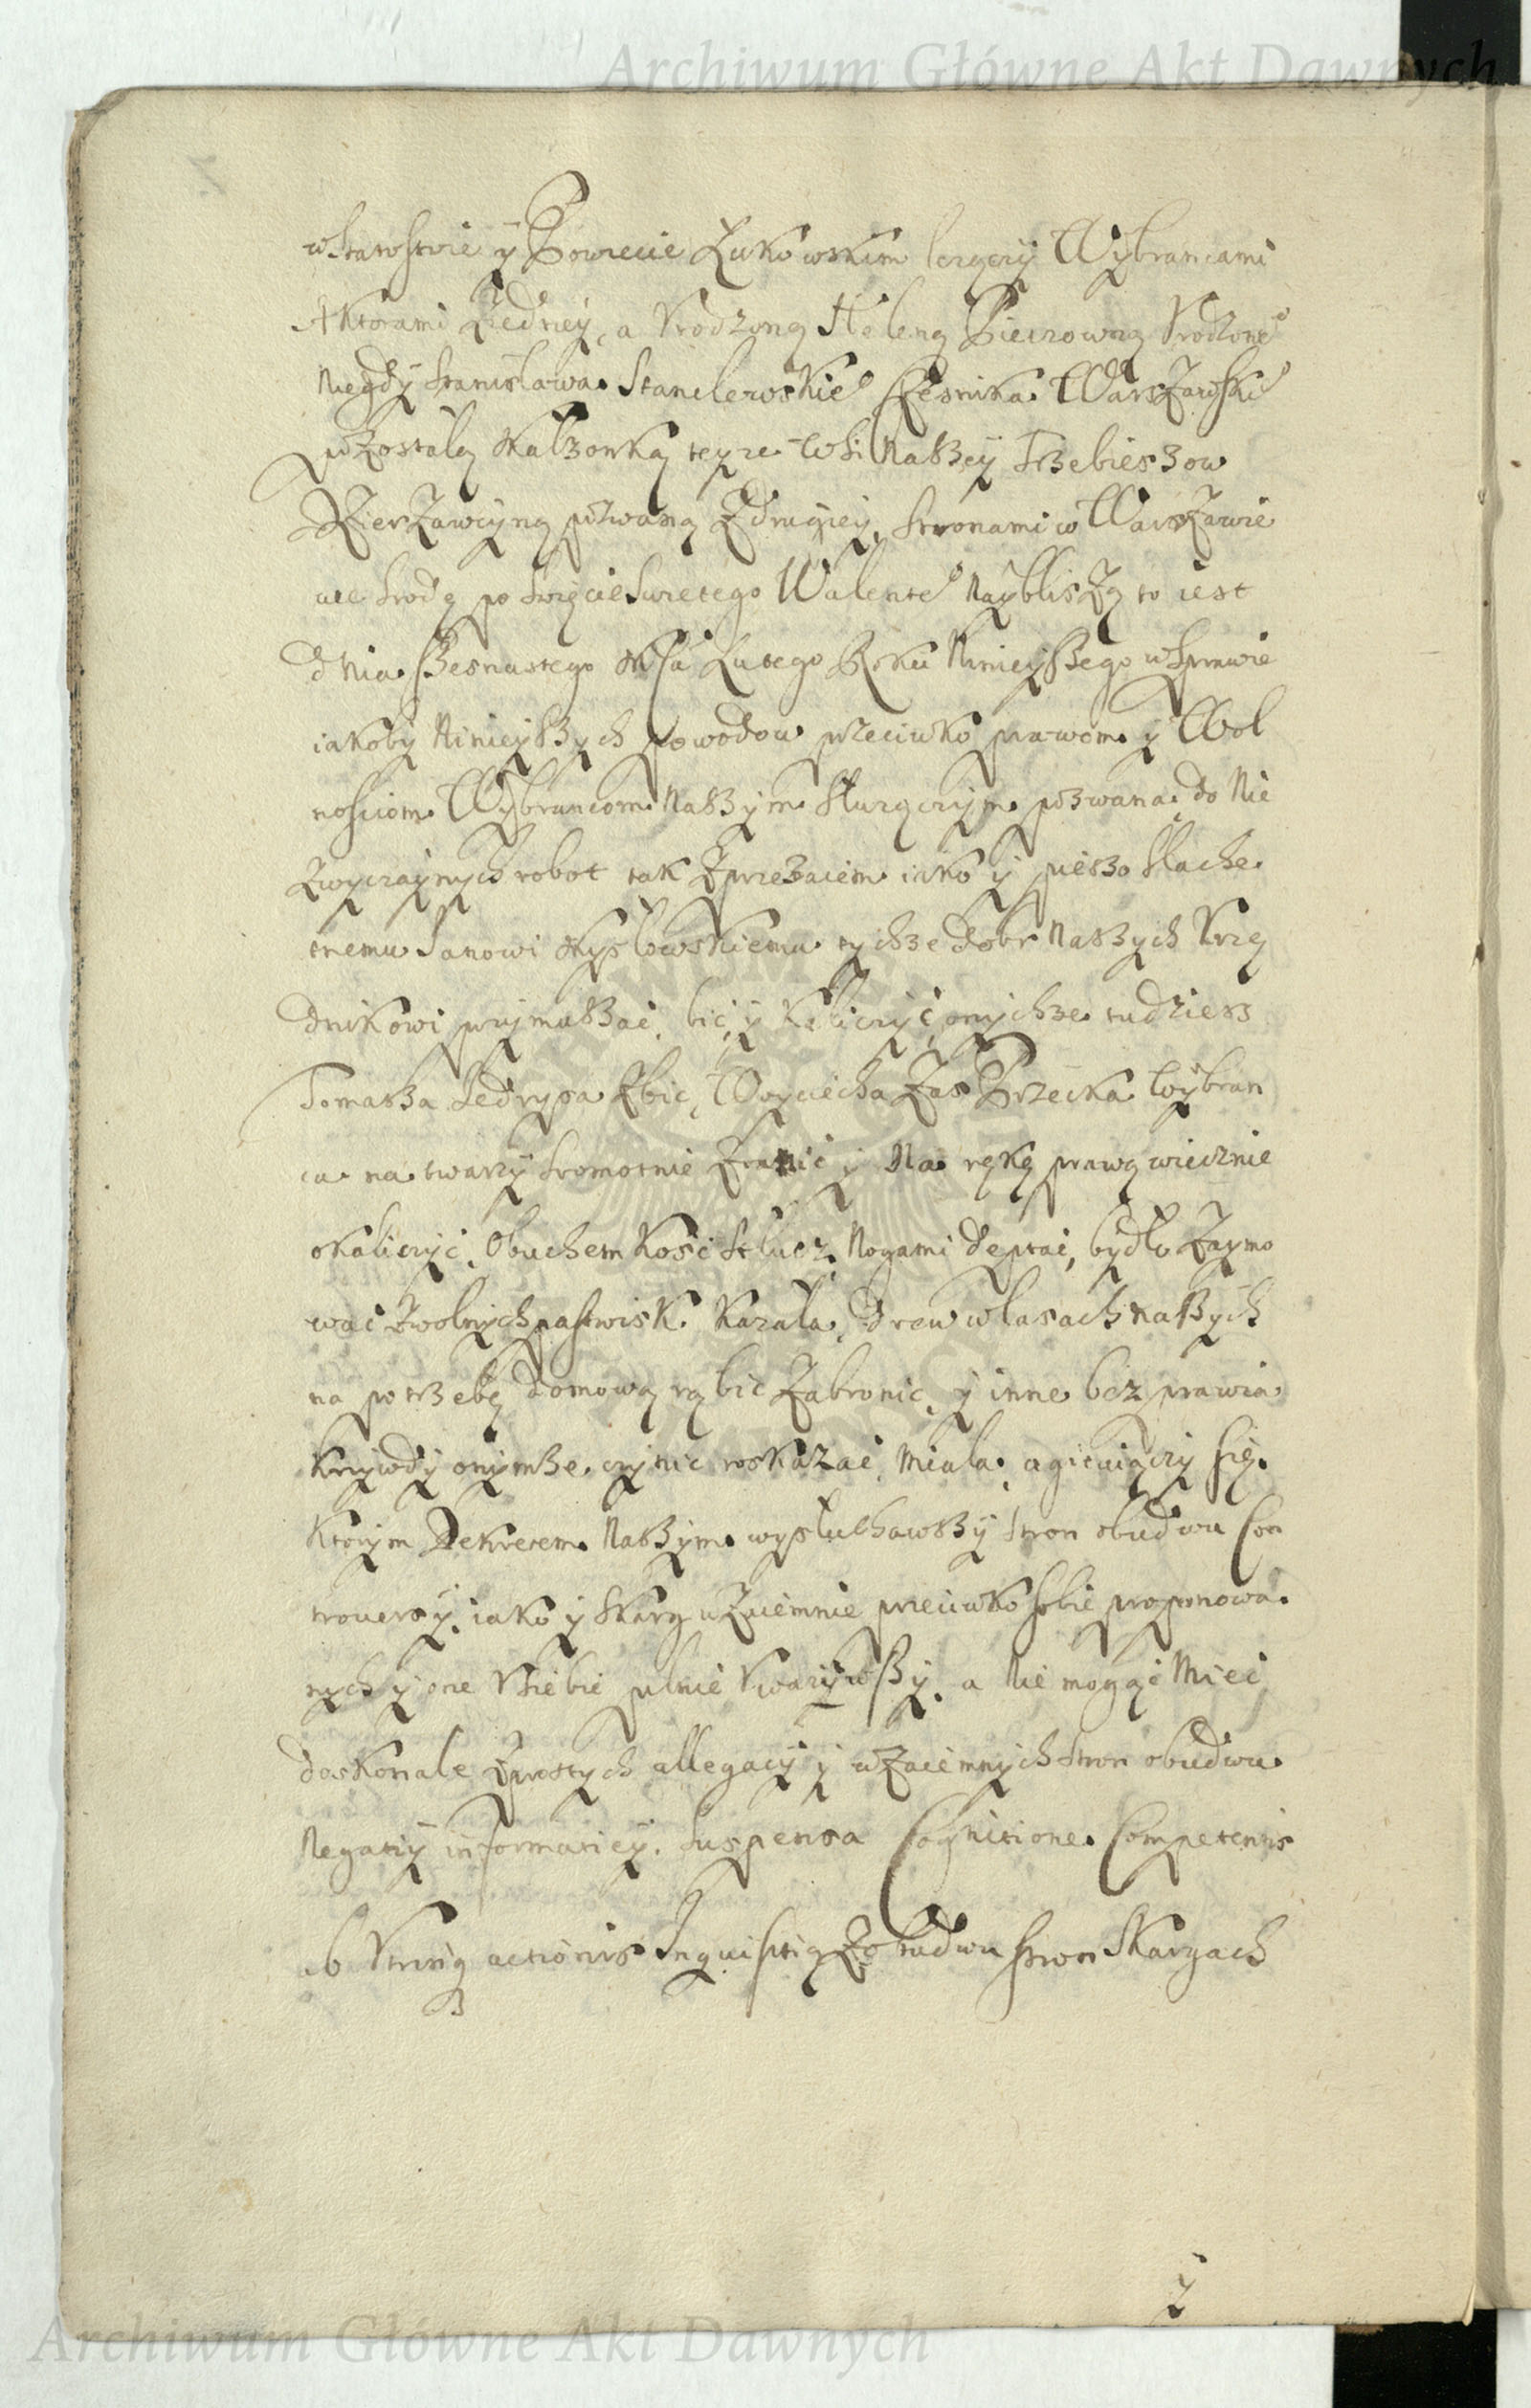 Archiwum Główne Akt Dawnych
w Starostwie y Powiecie Łukowskim lezący Wybrancami
Aktorami z iedney, a Vrodzoną Heleną Pieczowną Vrodzone°
Niegdy Stanisława Stanclewskie° Czesnika Warszawskie°
pozostałą Małzonką teyze Wsi Naszey Trzebieszow
Dzierzawczyną pozwaną z drugiey, Stronami w Warszawie
we Srodę po Swięcie Swietego Walente° Nayblisszą to iest
dnia szesnastego Msca Lutego Roku Ninieyszego w Sprawie
iakoby Ninieyszych powodow przeciwko prawom y Wol
nosciom Wybrancom Naszym Słuzączym pozwana do Nie
zwyczaynych robot tak z przezaiem iako y pieszo Slache
tnemu Janowi Mysłowskiemu tychze dobr Naszych Vrzę
dnikowi przymuszac, bic, y kaliczyc, onychze tudziesz
Tomasza Jedrysa zbic, Woyciecha zas Przecka Wybran
ca na twarzy Sromotnie zranic y Na rękę prawą wiecznie
okaliczyc, Obuchem kosc Stłucz, Nogami deptac, bydło zaymo
wac z wolnych pastwisk kazała, drew w lasach naszych
na potrzebę domową rąbic zabronic, y inne bezprawia
krzywdy onymze czynic roskazac miała, agituiączy się.
Ktorym Dekretem Naszym wysłuchawszy Stron obudwu Con
trowersy, iako y Skarg wzaiemnie przeciwko sobie proponowa
nych y one V siebie pilnie Vwazywszy, a Nie mogąc Miec
doskonale z prostych allegacyi y wzaiemnych Stron obudwu
Negatiy informatiey, Suspensa Cognitione Competentis
ab Vtrinq actionis Inquisitią z obudwu stron Skargach
y
Archiwum Główne Akt Dawnych